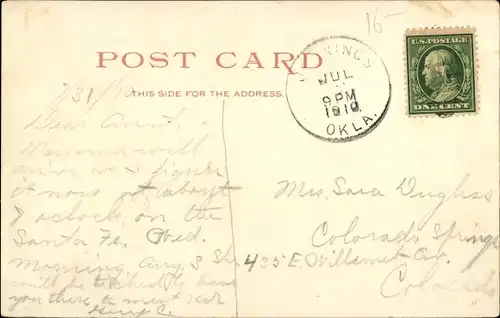 15
POST CARD
U.S. POSTAGE
ONE CENT
JENNINGS
JUL
9 PM
1910
OKLA.
7/31/10
THIS SIDE FOR THE ADDRESS
Dear Aunt.
Mamma will
arrive as I figure
it now at about
7 o'clock on the
Santa Fe. Wed.
morning Aug 3 She
will be to have
you there to meet her
C.
Mrs. Sara
Colorado Springs
435 E. Willamet Av.
Colorado